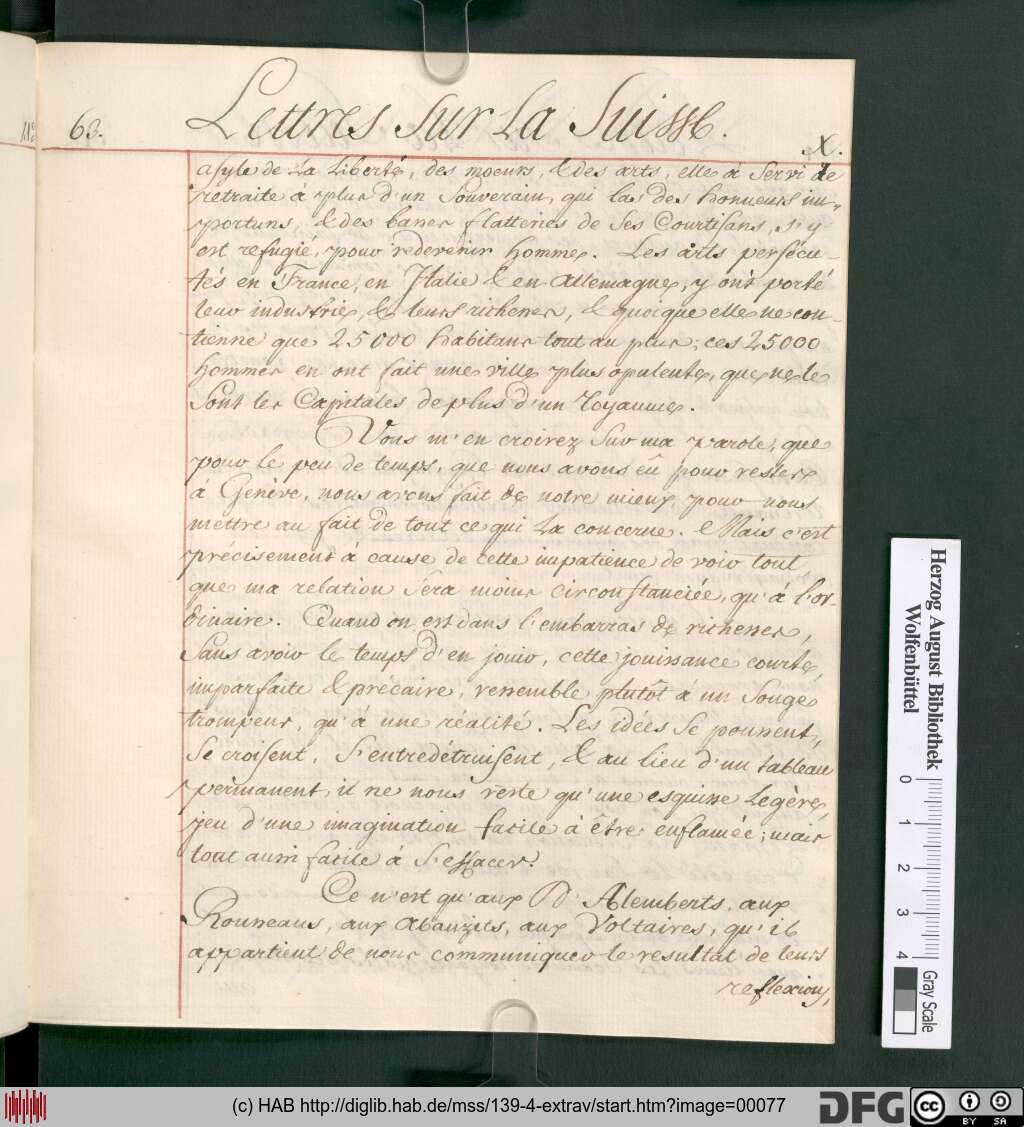 63. Lettres sur la Suisse. X.
asyle de la liberté, des moeurs, & des arts, elle à servi de
retraite à plus d'un Souverain, qui las des honneurs im-
portuns, & des basses flatteries de ses Courtisans, s'y
est refugié, pour redevenir homme. Les arts persécu-
tés en France, en Italie & en Allemagne, y ont porté
leur industrie, & leurs richesses, & quoique elle ne con-
tienne que 25000 habitans tout au plus; ces 25000
hommes en ont fait une ville plus opulente, que ne le
sont les Capitales de plus d'un royaume.
Vous m'en croirez sur ma parole, que
pour le peu de temps, que nous avons eû pour rester
à Genève, nous avons fait de notre mieux pour nous
mettre au fait de tout ce qui la concerne. Mais c'est
précisement à cause de cette impatience de voir tout
que ma relation sera moins circonstanciée, qu'à l'or-
dinaire. Quand on est dans l'embarras de richesses,
sans avoir le temps d'en jouir, cette jouissance courte,
imparfaite & précaire, ressemble plutôt à un songe
trompeur, qu'à une réalité. Les idées se poussent,
se croisent, s'entredétruisent, & au lieu d'un tableau
permanent, il ne nous reste qu'une esquisse legère,
jeu d'une imagination facile à être enflamée; mais
tout aussi facile à s'effacer.
Ce n'est qu'aux D'Alemberts, aux
Rousseaus, aux Abauzits, aux Voltaires, qu'il
appartient de nous communiquer le resultat de leurs
reflexions,
Herzog August Bibliothek
Wolfenbüttel
0 1 2 3 4
Gray Scale
(c) HAB http://diglib.hab.de/mss/139-4-extrav/start.htm?image=00077
DFG
cc BY SA